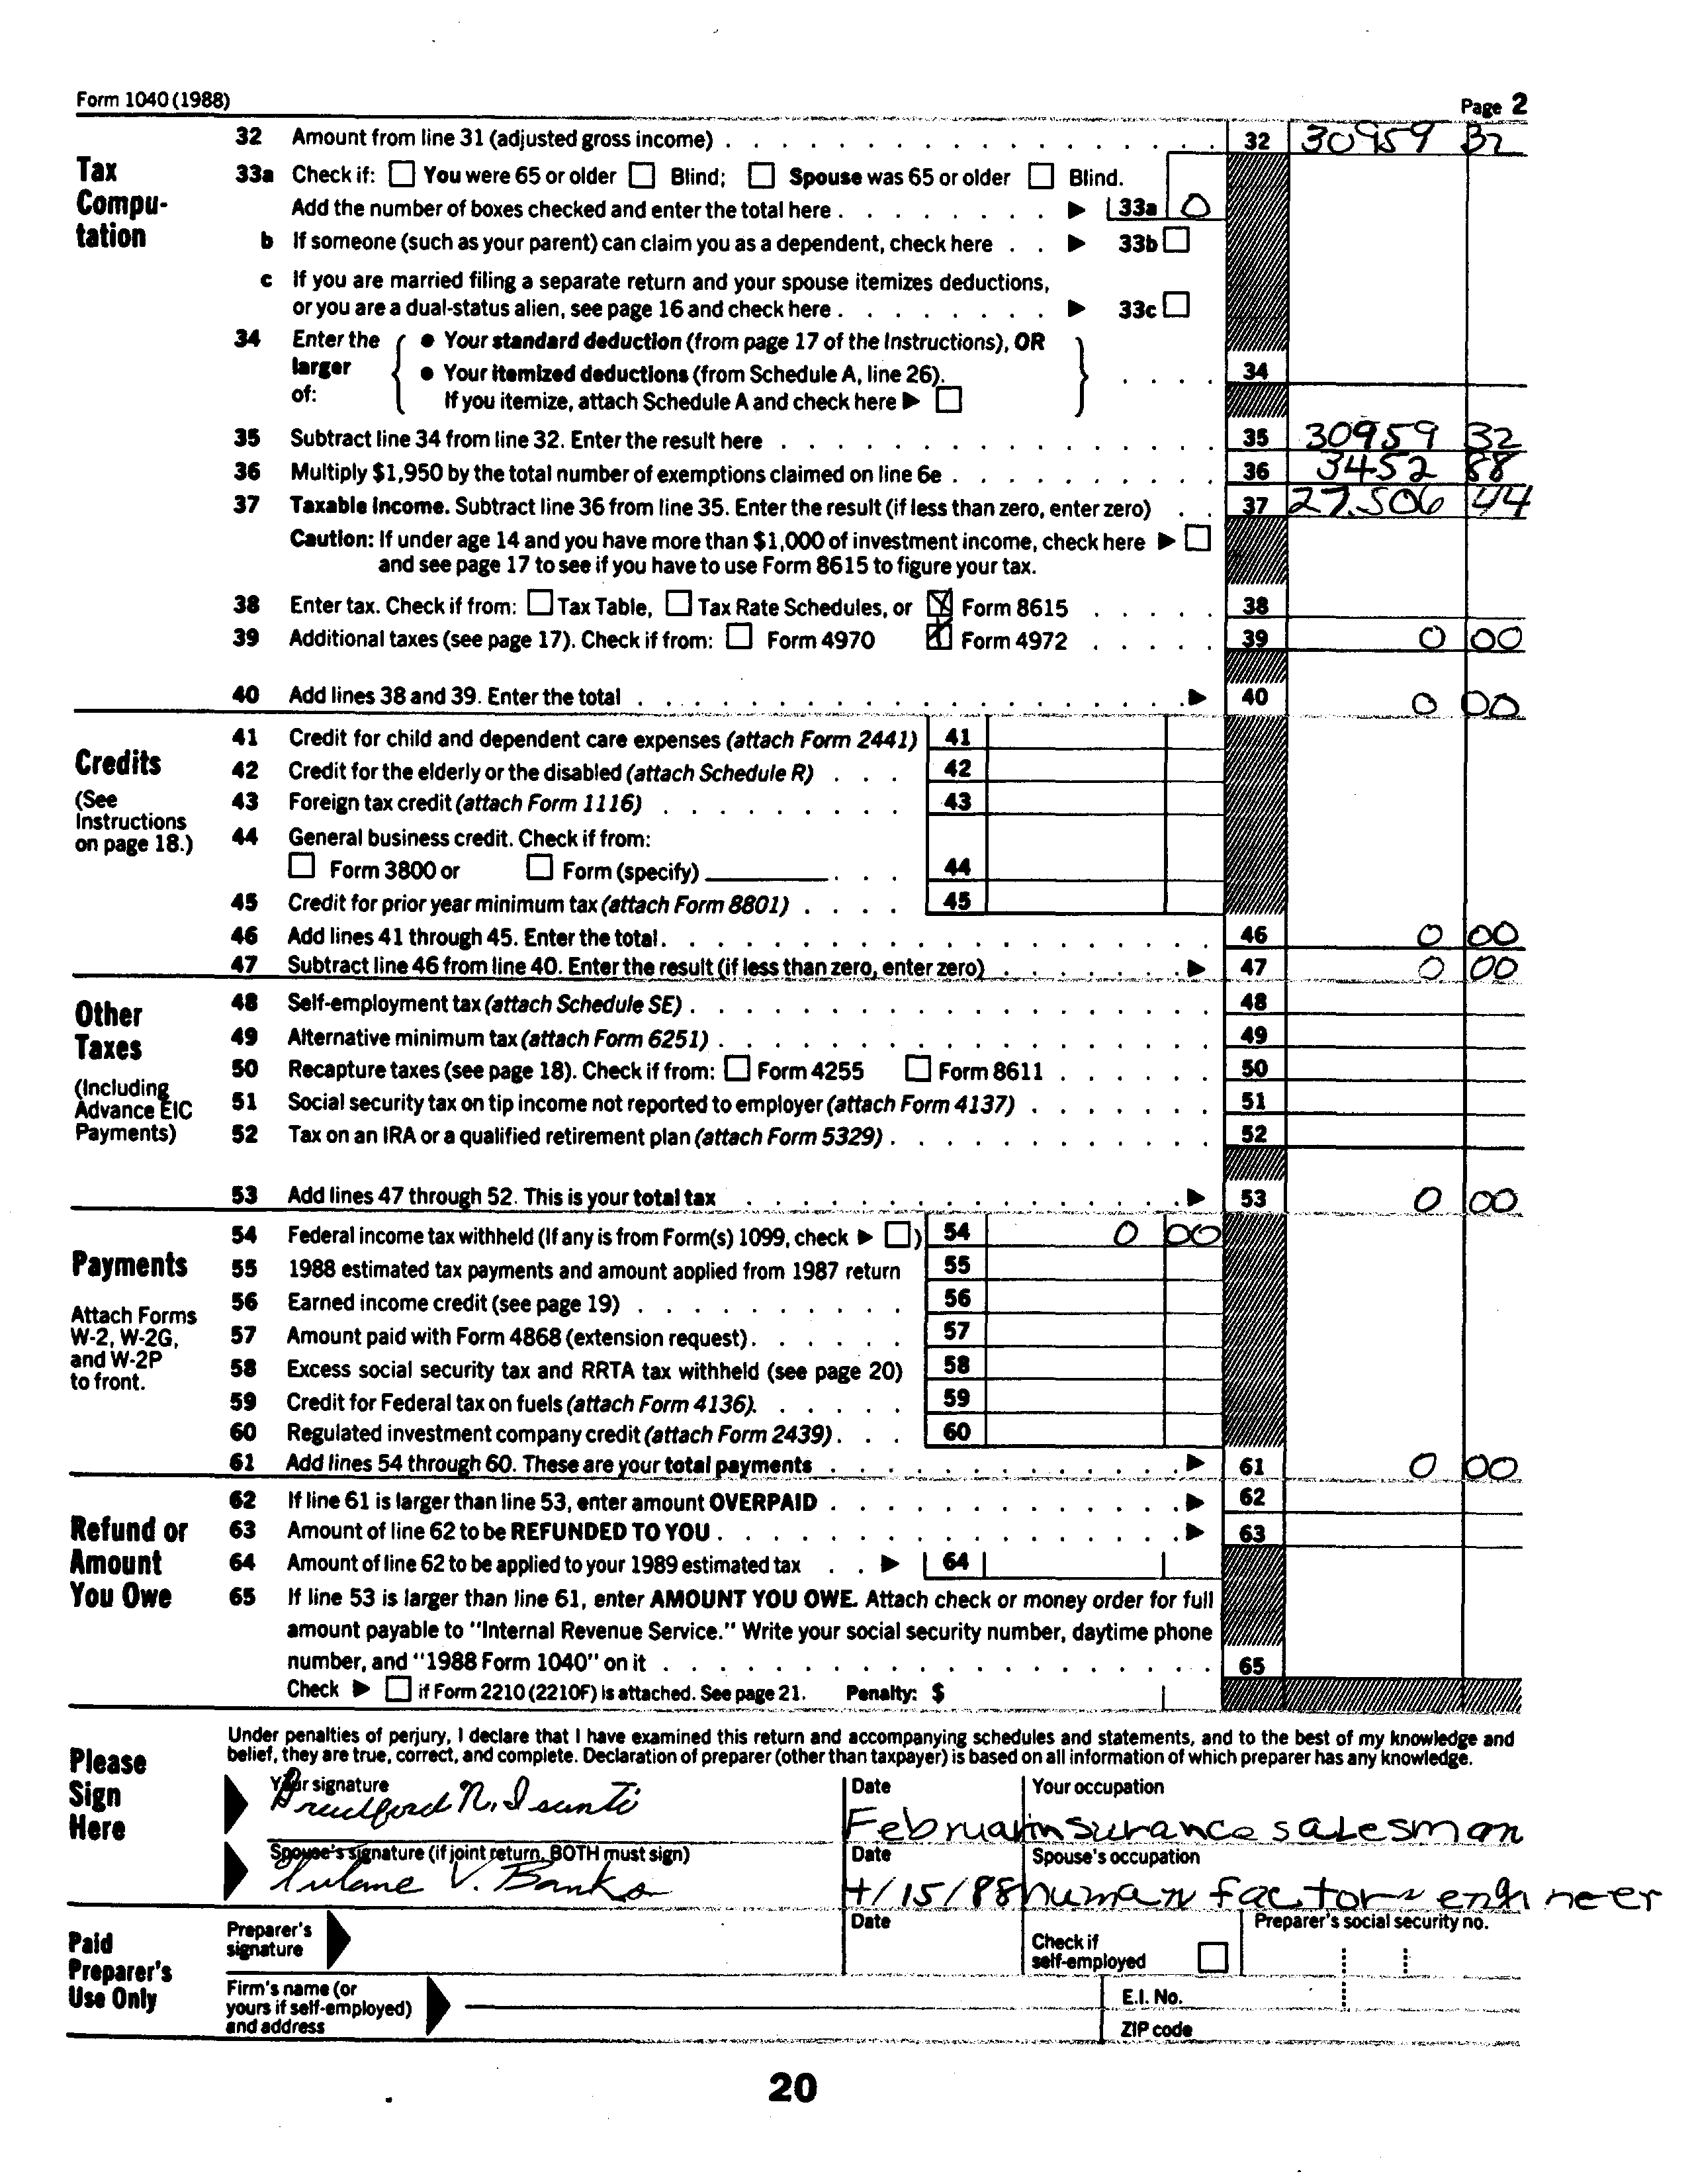 Form 1040 (1988)
Page 2
Tax Compu-
tation
32 Amount from line 31 (adjusted gross income) 32 30959 32
33a Check if: You were 65 or older Blind; Spouse was 65 or older Blind.
Add the number of boxes checked and enter the total here 33a 0
b If someone (such as your parent) can claim you as a dependent, check here 33b
c If you are married filing a separate return and your spouse itemizes deductions,
or you are a dual-status alien, see page 16 and check here 33c
34 Enter the larger of:
• Your standard deduction (from page 17 of the Instructions), OR
• Your itemized deductions (from Schedule A, line 26). 34
If you itemize, attach Schedule A and check here
35 Subtract line 34 from line 32. Enter the result here 35 30959 32
36 Multiply $1,950 by the total number of exemptions claimed on line 6e 36 3452 88
37 Taxable income. Subtract line 36 from line 35. Enter the result (if less than zero, enter zero) 37 27.506 44
Caution: If under age 14 and you have more than $1,000 of investment income, check here
and see page 17 to see if you have to use Form 8615 to figure your tax.
38 Enter tax. Check if from: Tax Table, Tax Rate Schedules, or X Form 8615 38
39 Additional taxes (see page 17). Check if from: Form 4970 X Form 4972 39 0 00
40 Add lines 38 and 39. Enter the total 40 0 00
Credits
(See
Instructions
on page 18.)
41 Credit for child and dependent care expenses (attach Form 2441) 41
42 Credit for the elderly or the disabled (attach Schedule R) 42
43 Foreign tax credit (attach Form 1116) 43
44 General business credit. Check if from:
Form 3800 or Form (specify) 44
45 Credit for prior year minimum tax (attach Form 8801) 45
46 Add lines 41 through 45. Enter the total 46 0 00
47 Subtract line 46 from line 40. Enter the result (if less than zero, enter zero) 47 0 00
Other
Taxes
(Including
Advance EIC
Payments)
48 Self-employment tax (attach Schedule SE) 48
49 Alternative minimum tax (attach Form 6251) 49
50 Recapture taxes (see page 18). Check if from: Form 4255 Form 8611 50
51 Social security tax on tip income not reported to employer (attach Form 4137) 51
52 Tax on an IRA or a qualified retirement plan (attach Form 5329) 52
53 Add lines 47 through 52. This is your total tax 53 0 00
Payments
Attach Forms
W-2, W-2G,
and W-2P
to front.
54 Federal income tax withheld (If any is from Form(s) 1099, check ) 54 0 00
55 1988 estimated tax payments and amount applied from 1987 return 55
56 Earned income credit (see page 19) 56
57 Amount paid with Form 4868 (extension request) 57
58 Excess social security tax and RRTA tax withheld (see page 20) 58
59 Credit for Federal tax on fuels (attach Form 4136) 59
60 Regulated investment company credit (attach Form 2439) 60
61 Add lines 54 through 60. These are your total payments 61 0 00
Refund or
Amount
You Owe
62 If line 61 is larger than line 53, enter amount OVERPAID 62
63 Amount of line 62 to be REFUNDED TO YOU 63
64 Amount of line 62 to be applied to your 1989 estimated tax 64
65 If line 53 is larger than line 61, enter AMOUNT YOU OWE. Attach check or money order for full
amount payable to "Internal Revenue Service." Write your social security number, daytime phone
number, and "1988 Form 1040" on it 65
Check if Form 2210 (2210F) is attached. See page 21. Penalty: $
Please
Sign
Here
Under penalties of perjury, I declare that I have examined this return and accompanying schedules and statements, and to the best of my knowledge and
belief, they are true, correct, and complete. Declaration of preparer (other than taxpayer) is based on all information of which preparer has any knowledge.
Your signature Date Your occupation
N. Isanti Februar insurance salesman
Spouse's signature (if joint return, BOTH must sign) Date Spouse's occupation
V. Banks 4/15/88 human factors engineer
Paid
Preparer's
Use Only
Preparer's
signature
Date
Check if
self-employed
Preparer's social security no.
Firm's name (or
yours if self-employed)
and address
E.I. No.
ZIP code
20